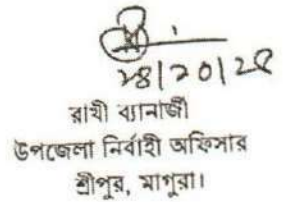 রাখী ব্যানার্জী
উপজেলা নির্বাহী অফিসার
শ্রীপুর, মাগুরা।